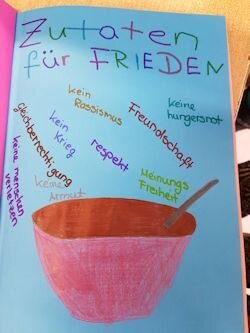 Zutaten
für FRIEDEN
kein
Rassismus
keine
hungersnot
Freundschaft
kein
Krieg
gleichberrechtigung
respekt
Meinungs
Freiheit
keine
Armut
keine menschen
verletzen